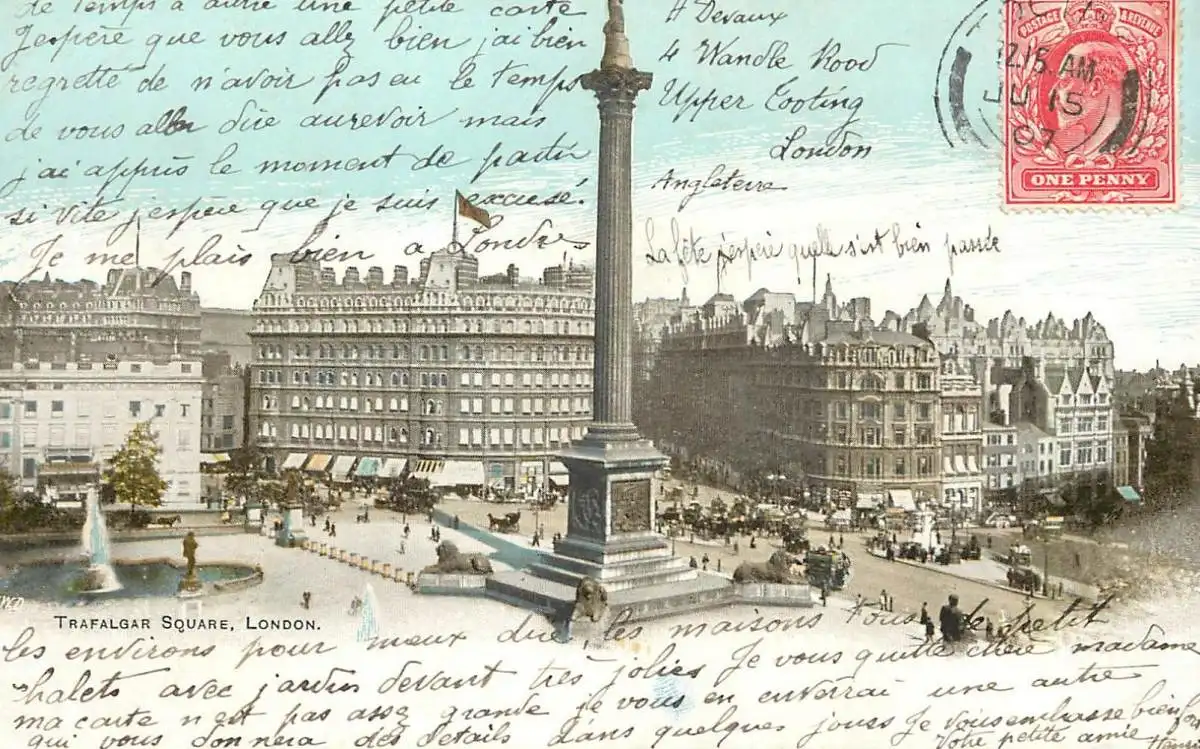 de temps à autre une petite carte
J'espère que vous allez bien j'ai bien
regretté de n'avoir pas eu le temps
de vous aller dire aurevoir mais
j'ai appris le moment de partir
si vite j'espère que je suis excusé.
Je me plais bien a Londres
Devaux
4 Wandle Road
Upper Tooting
London
Angleterre
La fête j'espère quelle s'est bien passée
POSTAGE & REVENUE
12.15 AM
JU 15
07
ONE PENNY
TRAFALGAR SQUARE, LONDON.
les environs pour mieux dire les maisons tous de petit
chalets avec jardin devant très jolies Je vous quitte chère madame
ma carte n'est pas assez grande je vous en enverrai une autre
qui vous donnera des details dans quelques jours Je vous embrasse bien
Votre petite amie